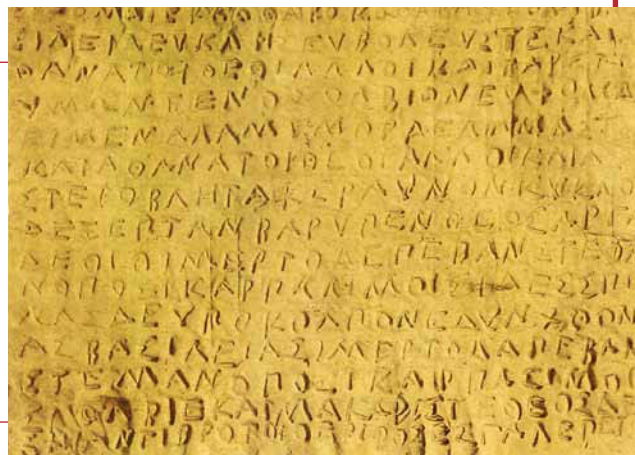 ΣΙΛΕΙΑΕΥΚΛΗΣΕΥΒΟΛΕΥΣΤΕΚΑΙ
ΘΑΝΑΤΟΙΘΕΟΙΑΛΛΟΙΚΑΙΓΑΡΕΓ
ΥΜΩΝΓΕΝΟΣΟΛΒΙΟΝΕΥΧΟΜΑ
ΕΙΜΕΝΑΛΑΜΕΜΟΡΑΕΔΑΜΑΣ
ΚΑΙΑΘΑΝΑΤΟΙΘΕΟΙΑΛΛΟΙΚΑΙΑ
ΣΤΕΡΟΒΛΗΤΑΚΕΡΑΥΝΟΝΚΥΚΛΟ
ΔΕΞΕΠΤΑΝΒΑΡΥΠΕΝΘΕΟΣΑΡΓΑ
ΛΕΟΙΟΙΜΕΡΤΟΔΕΠΕΒΑΝΣΤΕΦΑ
ΝΟΠΟΣΙΚΑΡΠΑΛΙΜΟΙΣΙΔΕΣΣΠΟ
ΝΑΣΔΕΥΠΟΚΟΛΠΟΝΕΔΥΝΧΘΟΝ
ΑΣΒΑΣΙΛΕΙΑΣΙΜΕΡΤΟΔΑΠΕΒΑΝ
ΣΤΕΜΑΝΟΠΟΣΙΚΑΡΠΑΣΙΜΟΙ